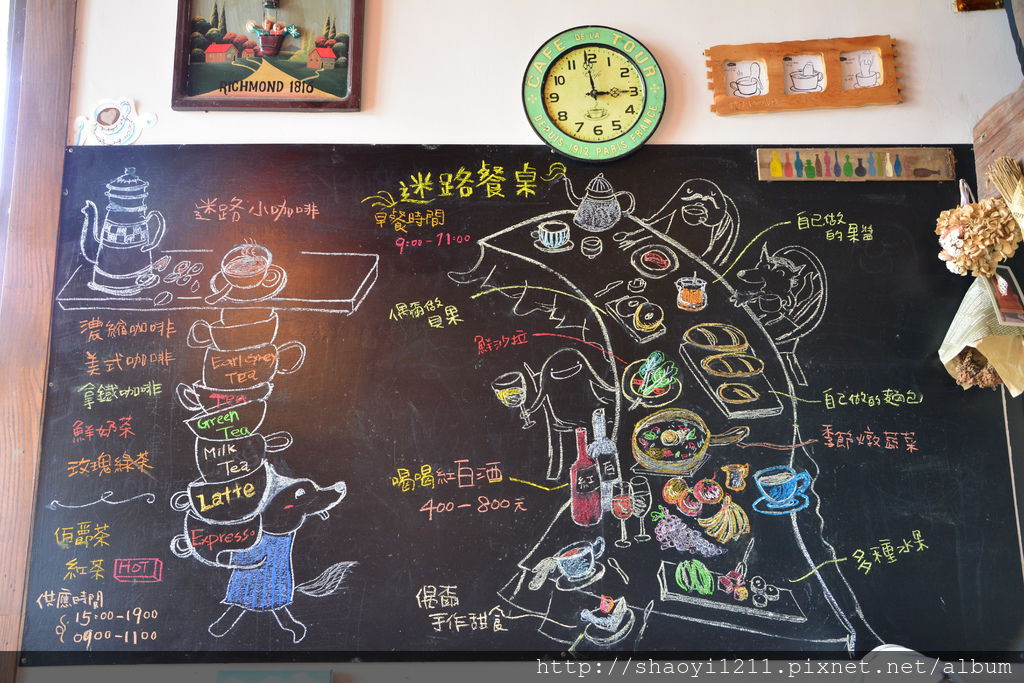 RICHMOND 1810
CAFE DE LA TOUR
12
1
2
3
4
5
6
7
8
9
10
11
DEPUIS 1912. PARIS FRANCE
迷路小咖啡
濃縮咖啡
美式咖啡
拿鐵咖啡
鮮奶茶
玫瑰綠茶
伯爵茶
紅茶 HOT
供應時間
15:00-1900
0900-1100
Earl Grey
Tea
Tea
Green
Tea
Milk
Tea
Latte
Expresso
迷路餐桌
早餐時間
9:00-11:00
自己做
的果醬
偶爾做
貝果
鮮沙拉
自己做的麵包
季節燉蔬菜
喝喝紅白酒
400-800元
紅
白
多種水果
偶爾
手作甜食
http://shaoyi1211.pixnet.net/album